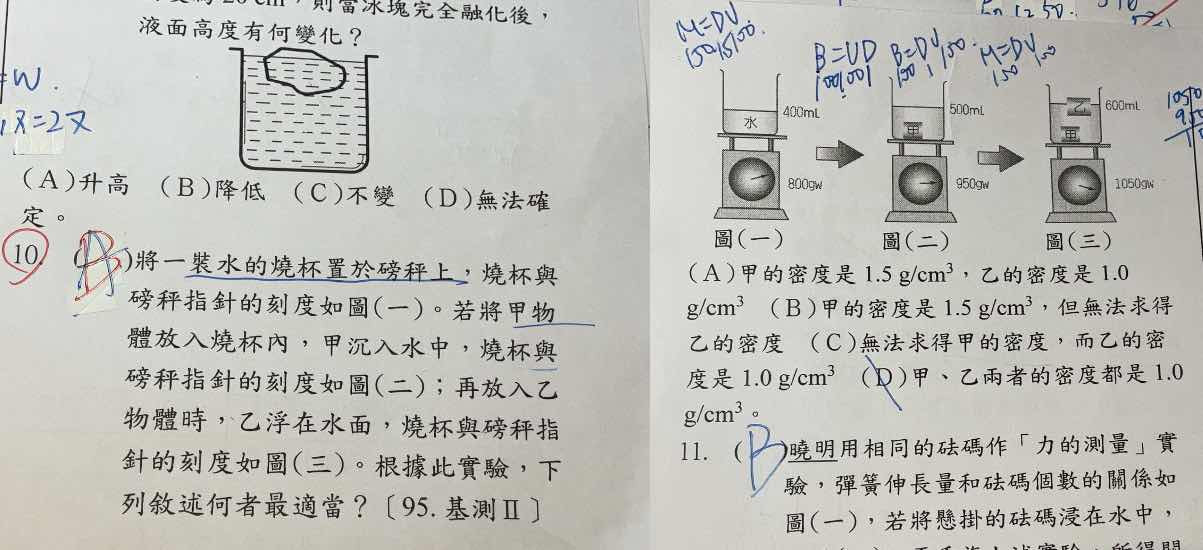 則當冰塊完全融化後，
液面高度有何變化？
=W.
(A)升高 (B)降低 (C)不變 (D)無法確
定。
10. (A)將一裝水的燒杯置於磅秤上，燒杯與
磅秤指針的刻度如圖(一)。若將甲物
體放入燒杯內，甲沉入水中，燒杯與
磅秤指針的刻度如圖(二)；再放入乙
物體時，乙浮在水面，燒杯與磅秤指
針的刻度如圖(三)。根據此實驗，下
列敘述何者最適當？〔95. 基測Ⅱ〕
M=DV
B=VD B=DV M=DV
水 400mL 甲 500mL 乙 甲 600mL
800gw 950gw 1050gw
圖(一) 圖(二) 圖(三)
(A)甲的密度是 1.5 g/cm³，乙的密度是 1.0
g/cm³ (B)甲的密度是 1.5 g/cm³，但無法求得
乙的密度 (C)無法求得甲的密度，而乙的密
度是 1.0 g/cm³ (D)甲、乙兩者的密度都是 1.0
g/cm³。
11. (B)曉明用相同的砝碼作「力的測量」實
驗，彈簧伸長量和砝碼個數的關係如
圖(一)，若將懸掛的砝碼浸在水中，